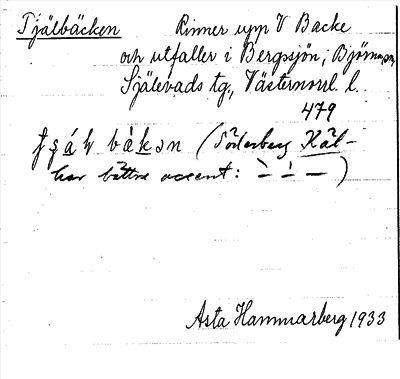 Tjälbäcken Rinner upp V Backe
och utfaller i Bergssjön, Björna sn,
Själevads tg., Västernorrl. l.
479
bàkən (Söderberg Käl-
har bättre accent: )
Asta Hammarberg 1933